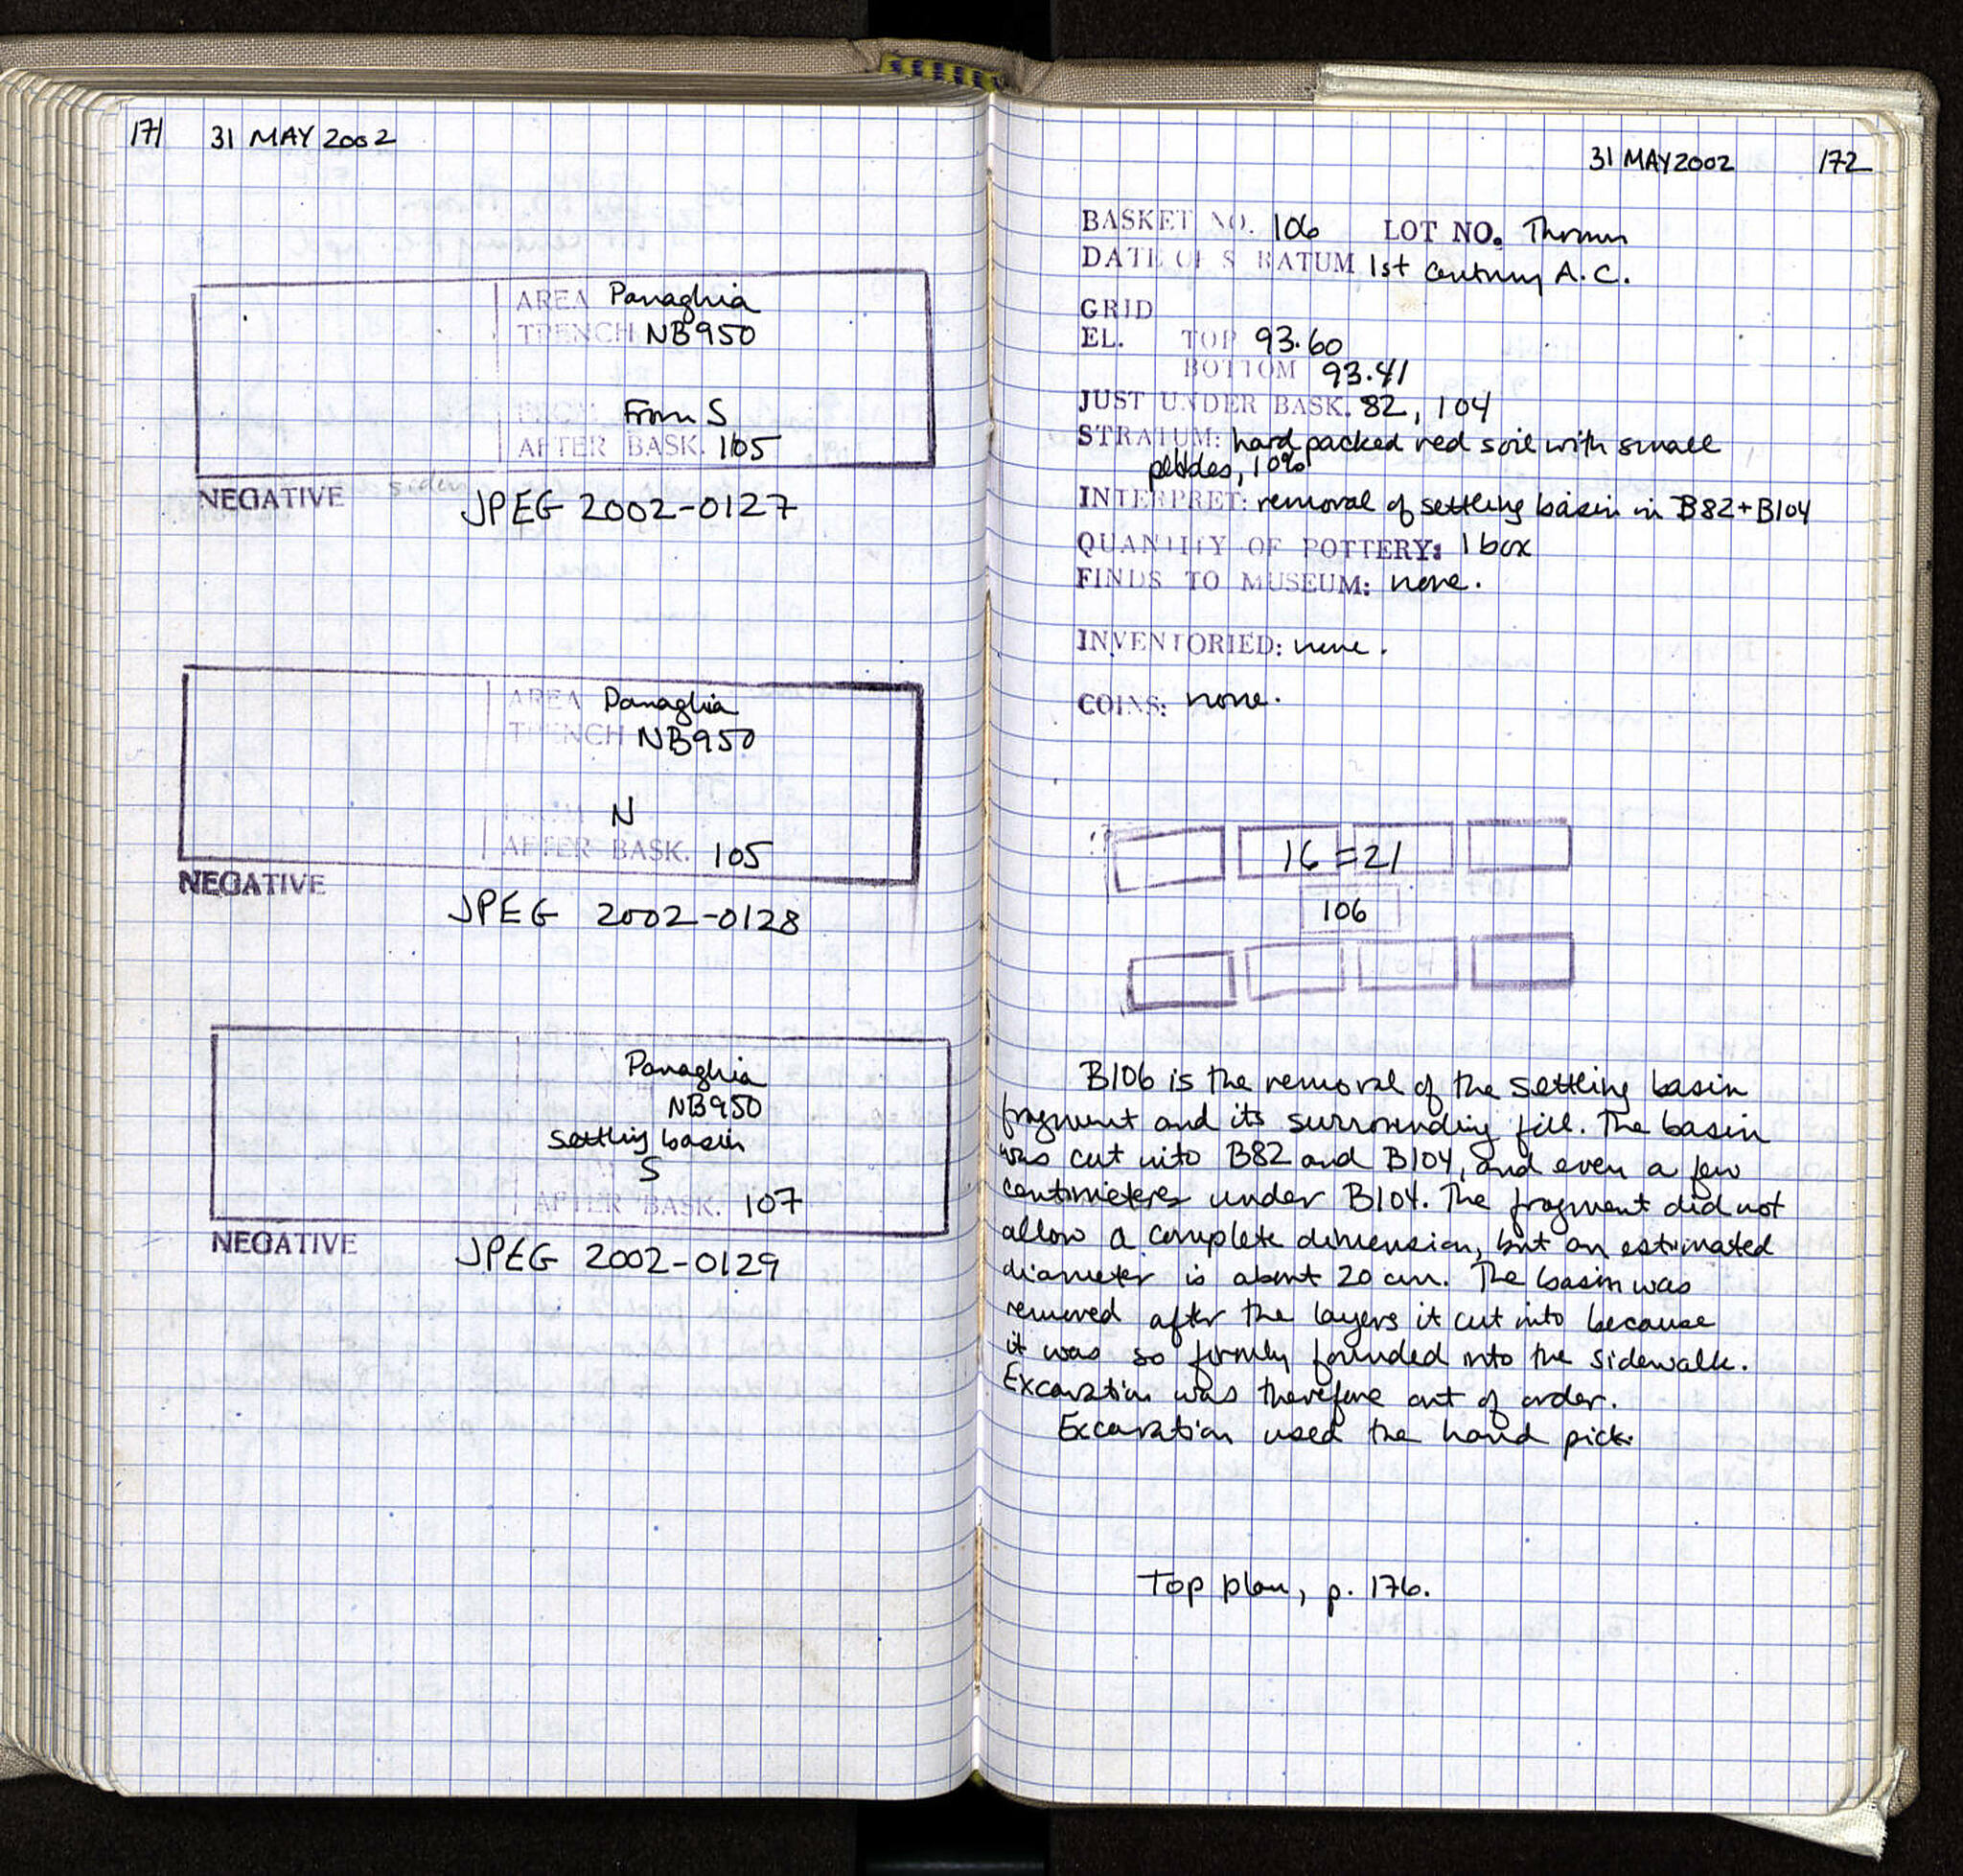 171 31 MAY 2002
AREA Panaghia
TRENCH NB950
From S
AFTER BASK. 105
NEGATIVE
JPEG 2002-0127
AREA Panaghia
TRENCH NB950
N
AFTER BASK. 105
NEGATIVE
JPEG 2002-0128
Panaghia
NB950
settling basin
S
AFTER BASK. 107
NEGATIVE
JPEG 2002-0129
31 MAY 2002 172
BASKET NO. 106 LOT NO. Thrown
DATE OF STRATUM 1st century A.C.
GRID
EL. TOP 93.60
BOTTOM 93.41
JUST UNDER BASK. 82, 104
STRATUM: hard packed red soil with small
pebbles, 10%
INTERPRET: removal of settling basin in B82+B104
QUANTITY OF POTTERY: 1 box
FINDS TO MUSEUM: none.
INVENTORIED: none.
COINS: none.
16 = 21
106
B106 is the removal of the settling basin
fragment and its surrounding fill. The basin
was cut into B82 and B104, and even a few
centimeters under B104. The fragment did not
allow a complete dimension, but an estimated
diameter is about 20 cm. The basin was
removed after the layers it cut into because
it was so firmly founded into the sidewalk.
Excavation was therefore out of order.
Excavation used the hand pick.
Top plan, p. 176.